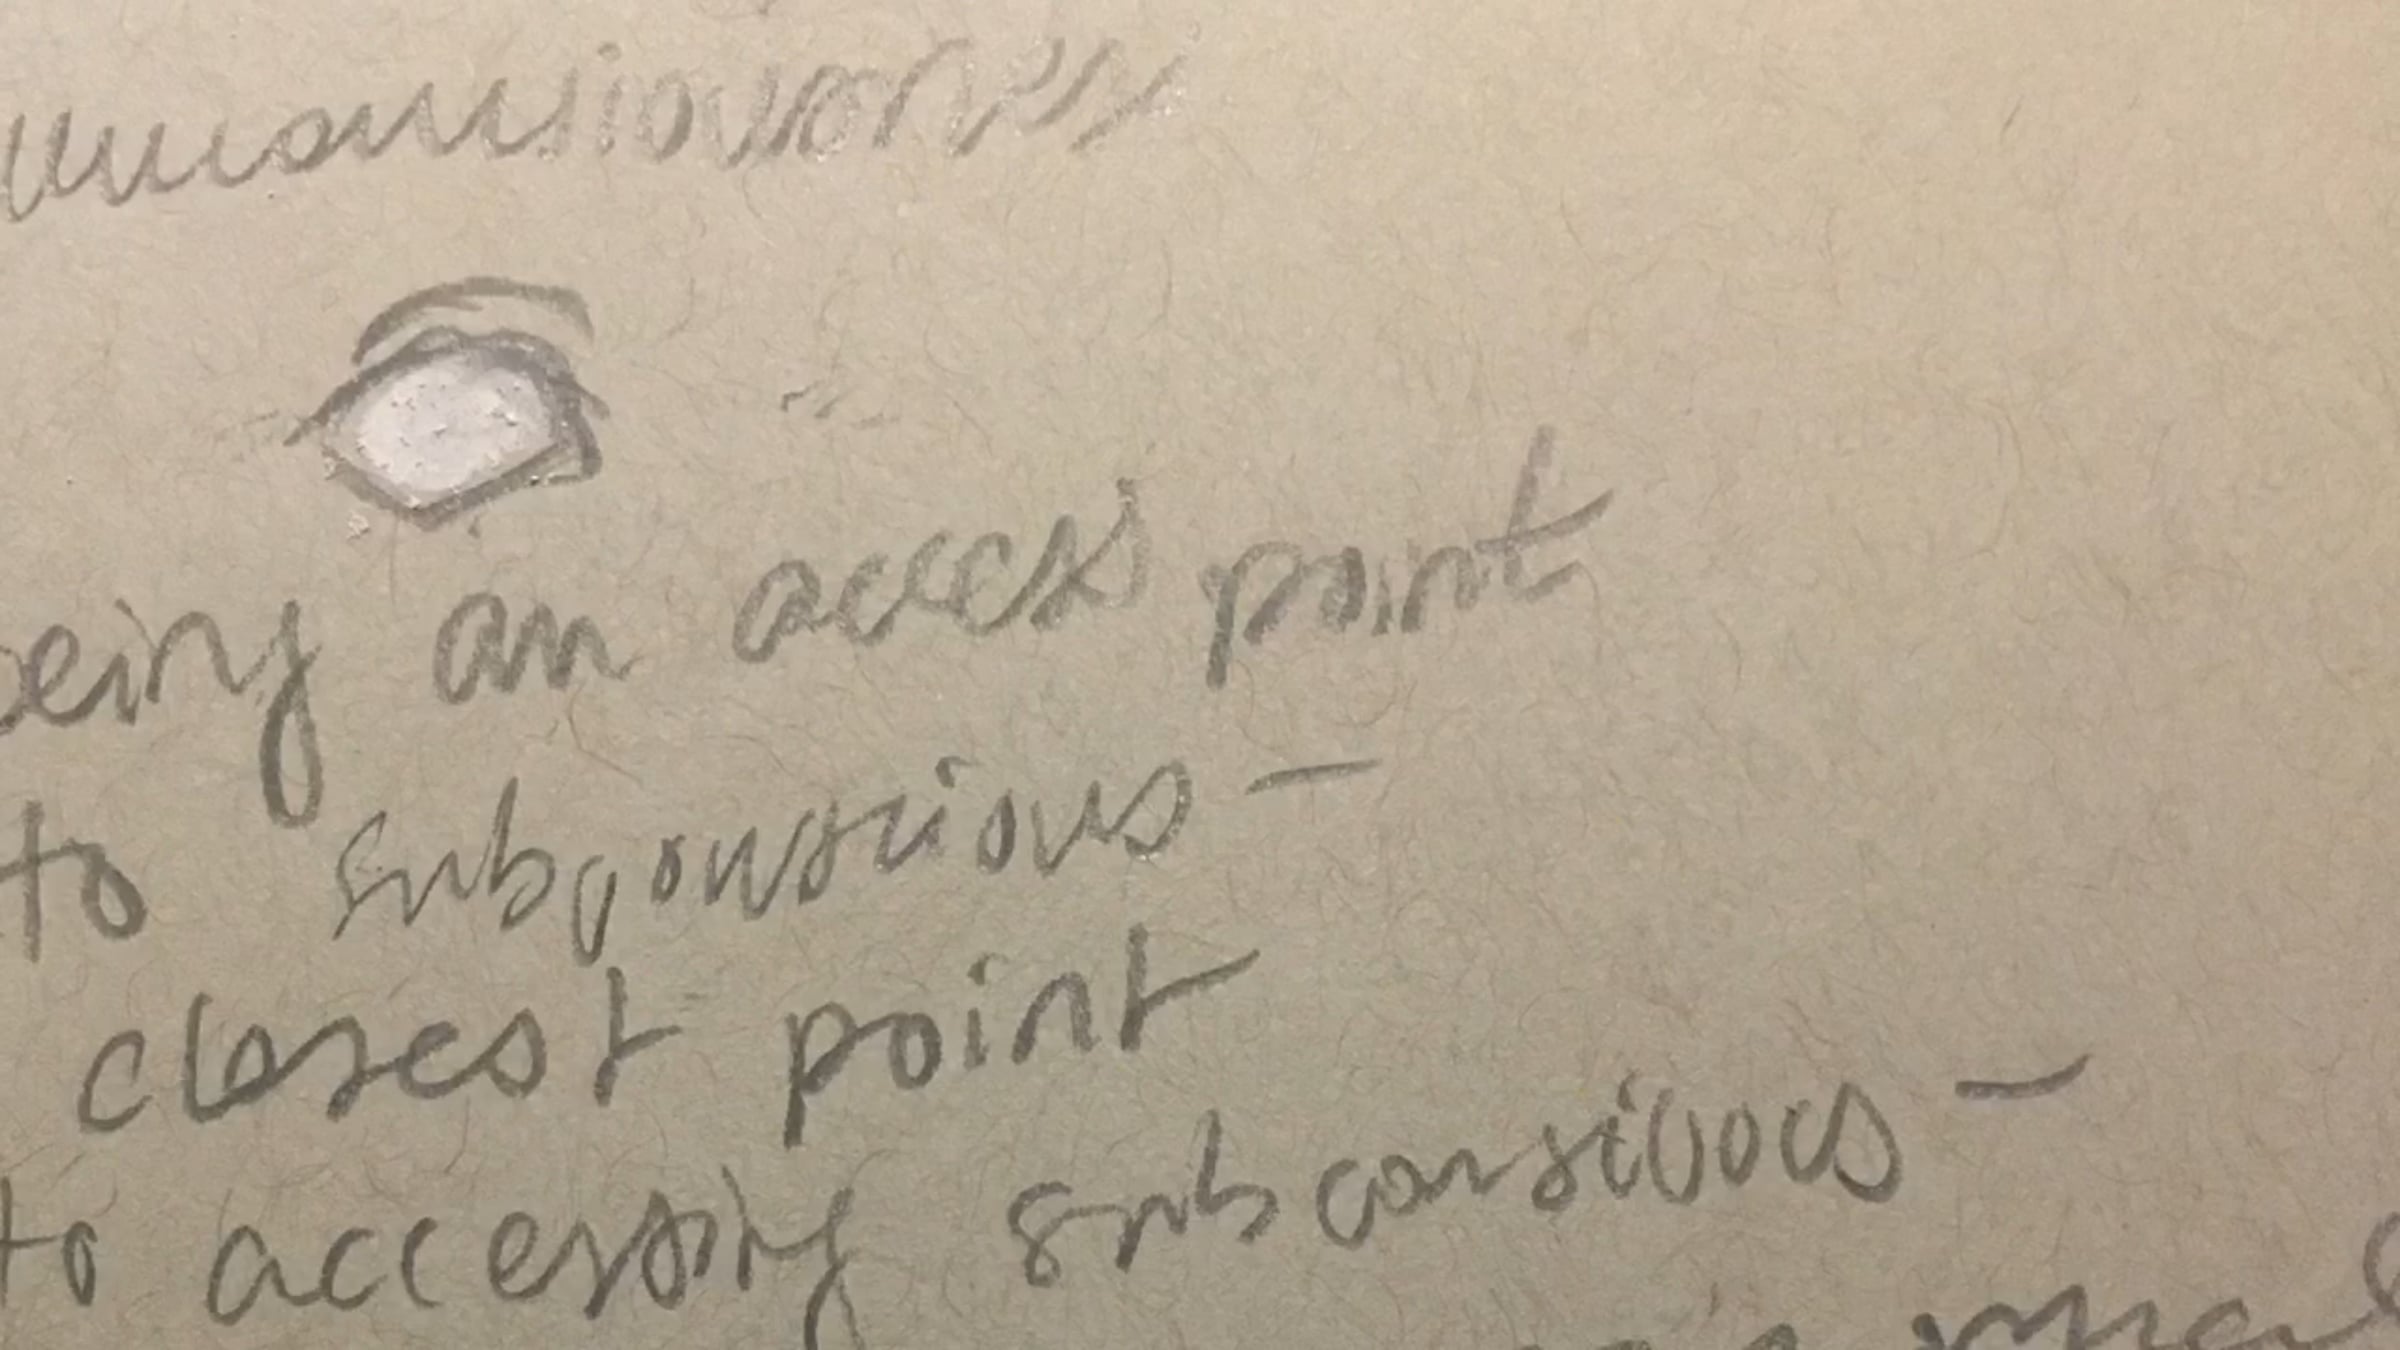 being an access point
to subconscious –
closest point
to accessing subconsivous –